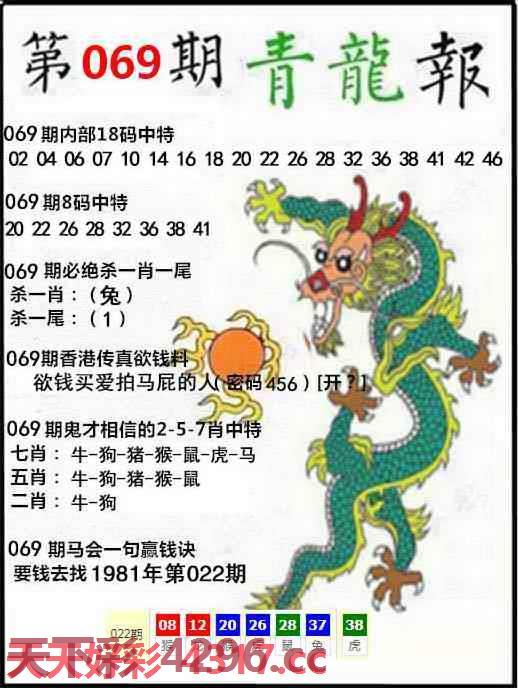 第069期青龍報
069期内部18码中特
02 04 06 07 10 14 16 18 20 22 26 28 32 36 38 41 42 46
069期8码中特
20 22 26 28 32 36 38 41
069 期必绝杀一肖一尾
杀一肖：（兔）
杀一尾：（1）
069期香港传真欲钱料
欲钱买爱拍马屁的人(密码456)[开?]
069期鬼才相信的2-5-7肖中特
七肖：牛-狗-猪-猴-鼠-虎-马
五肖：牛-狗-猪-猴-鼠
二肖：牛-狗
069 期马会一句赢钱诀
要钱去找1981年第022期
022期 08 12 20 26 28 37 38
猴 鼠 兔 虎
天天好彩44296.cc